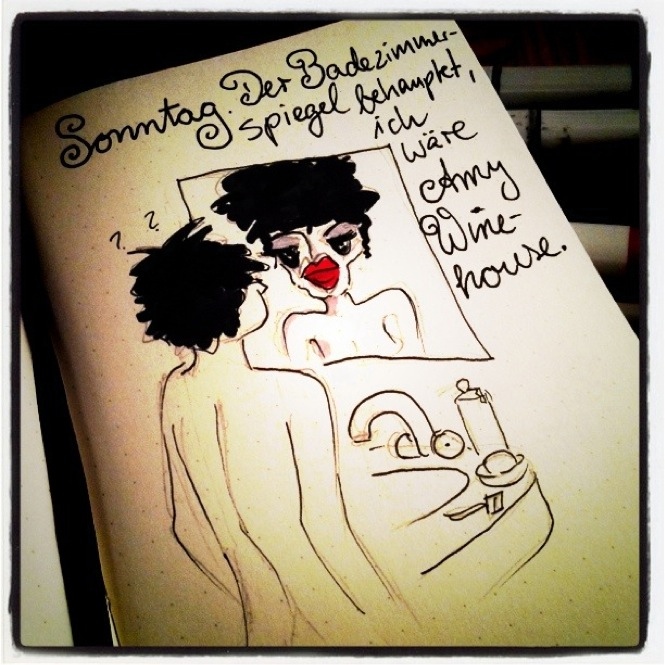 Sonntag. Der Badezimmer-
spiegel behauptet,
ich
wäre
Amy
Wine-
house.
? ?